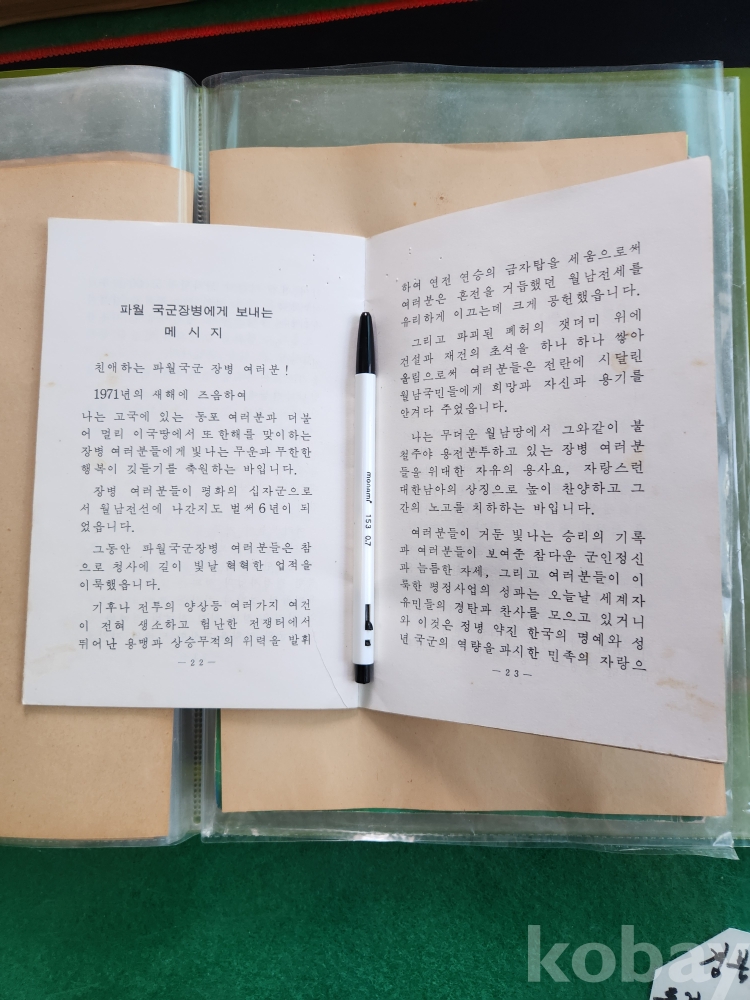 파월 국군장병에게 보내는
메 시 지
친애하는 파월국군 장병 여러분!
1971년의 새해에 즈음하여
나는 고국에 있는 동포 여러분과 더불
어 멀리 이국땅에서 또 한해를 맞이하는
장병 여러분들에게 빛나는 무운과 무한한
행복이 깃들기를 축원하는 바입니다.
장병 여러분들이 평화의 십자군으로
서 월남전선에 나간지도 벌써 6년이 되
었읍니다.
그동안 파월국군장병 여러분들은 참
으로 청사에 길이 빛날 혁혁한 업적을
이룩했읍니다.
기후나 전투의 양상등 여러가지 여건
이 전혀 생소하고 험난한 전쟁터에서
뛰어난 용맹과 상승무적의 위력을 발휘
—22—
하여 연전 연승의 금자탑을 세움으로써
여러분은 혼전을 거듭했던 월남전세를
유리하게 이끄는데 크게 공헌했읍니다.
그리고 파괴된 폐허의 잿더미 위에
건설과 재건의 초석을 하나 하나 쌓아
올림으로써 여러분들은 전란에 시달린
월남국민들에게 희망과 자신과 용기를
안겨다 주었읍니다.
나는 무더운 월남땅에서 그와같이 불
철주야 용전분투하고 있는 장병 여러분
들을 위대한 자유의 용사요, 자랑스런
대한남아의 상징으로 높이 찬양하고 그
간의 노고를 치하하는 바입니다.
여러분들이 거둔 빛나는 승리의 기록
과 여러분들이 보여준 참다운 군인정신
과 늠름한 자세, 그리고 여러분들이 이
룩한 평정사업의 성과는 오늘날 세계자
유민들의 경탄과 찬사를 모으고 있거니
와 이것은 정병 약진 한국의 명예와 성
년 국군의 역량을 과시한 민족의 자랑으
—23—
monami
153 0.7
kobay